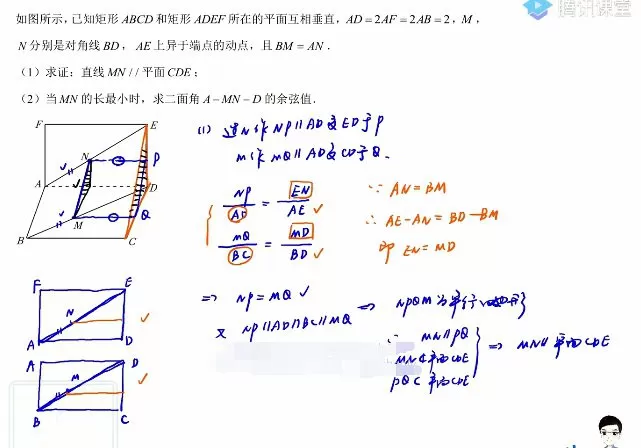 腾讯课堂
如图所示，已知矩形ABCD和矩形ADEF所在的平面互相垂直，AD=2AF=2AB=2，M，
N分别是对角线BD，AE上异于端点的动点，且BM=AN．
（1）求证：直线MN//平面CDE；
（2）当MN的长最小时，求二面角A-MN-D的余弦值．
(1) 过N作NP∥AD交ED于P
M作MQ∥AD交CD于Q.
NP/AD = EN/AE
MQ/BC = MD/BD
∵ AN=BM
∴ AE-AN=BD-BM
即 EN=MD
⇒ NP=MQ
又 NP∥AD∥BC∥MQ
⇒ NPQM为平行四边形
∵ MN∥PQ
MN⊄平面CDE
PQ⊂平面CDE
⇒ MN∥平面CDE
F E
N P
A D
M Q
B C
F E
N
A D
A D
M
B C